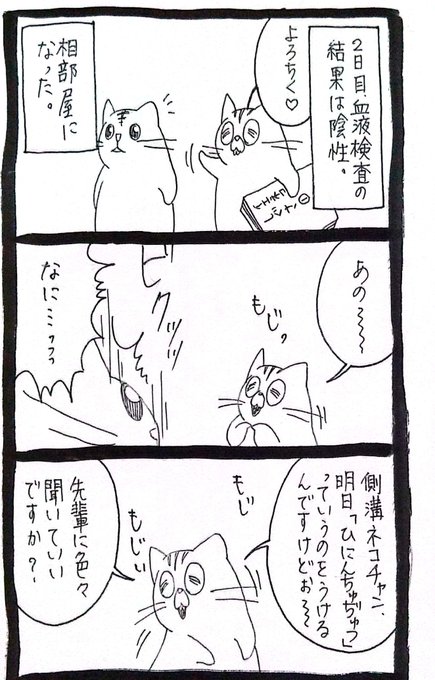 2日目、血液検査の
結果は陰性。
よろちく♡
相部屋に
なった。
あの〜〜
もじっ
グッッ
なにミッフっ
側溝ネコチャン、
明日「ひにんぢゅぢゅつ」
っていうのをうける
んですけどぉ〜〜
もじ
もじぃ
先輩に色々
聞いていい
ですか?